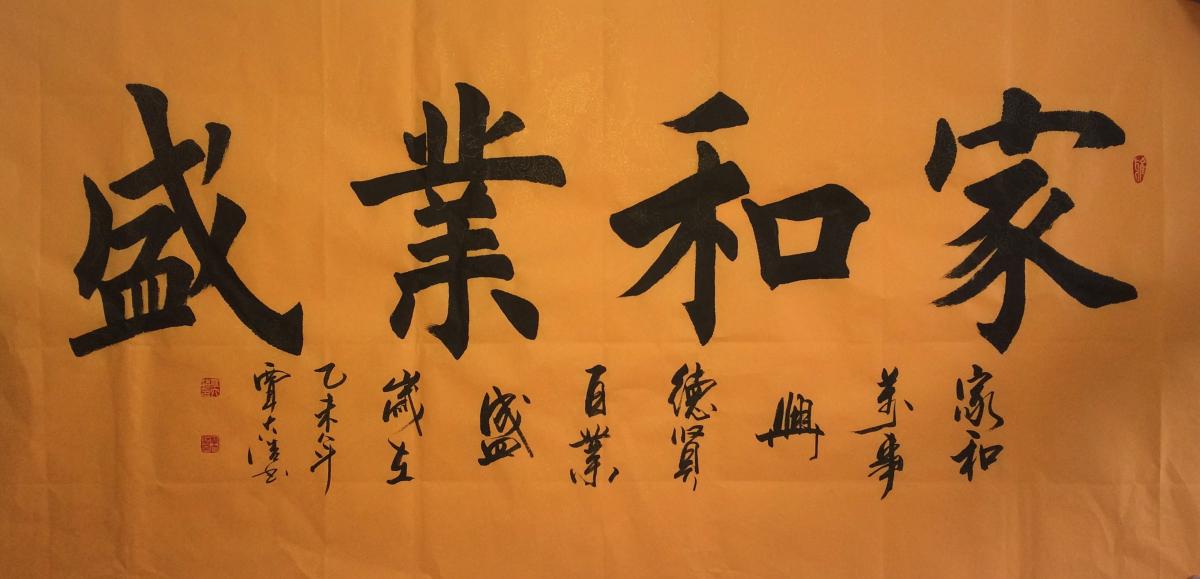 家和業盛
家和
萬事
興
德賢
百業
盛
歲在
乙未年
賈大浩书